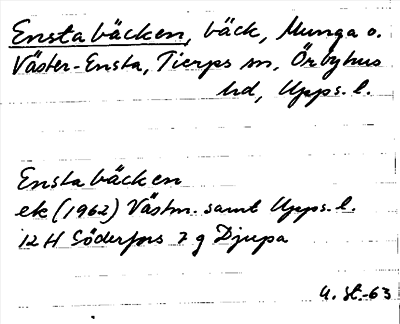 Ensta bäcken, bäck, Munga o.
Väster-Ensta, Tierps sn, Örbyhus
hd, Upps. l.
Ensta bäcken
ek (1962) Västm. samt Upps. l.
12 H Söderfors 7 g Djupa
u. st.-63